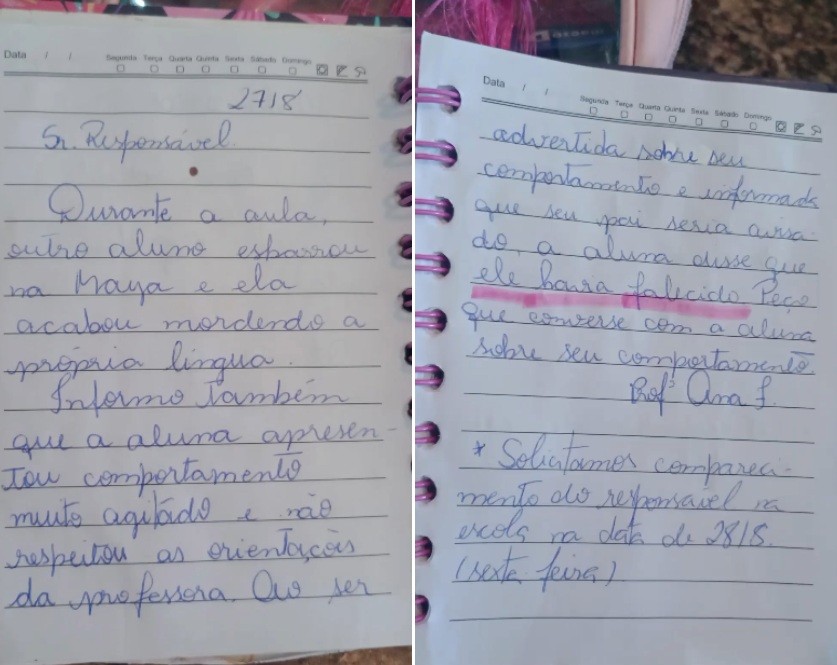 Data / /
Segunda Terça Quarta Quinta Sexta Sábado Domingo
27/8
Sr. Responsável.
Durante a aula,
outro aluno esbarrou
na Maya e ela
acabou mordendo a
própria língua.
Informo também
que a aluna apresen-
tou comportamento
muito agitado e não
respeitou as orientações
da professora. Ao ser
Data / /
Segunda Terça Quarta Quinta Sexta Sábado Domingo
advertida sobre seu
comportamento e informada
que seu pai seria avisa-
do, a aluna disse que
ele havia falecido. Peço
que converse com a aluna
sobre seu comportamento.
Profª Ana F.
* Solicitamos compareci-
mento do responsável na
escola na data de 28/8.
(sexta feira)